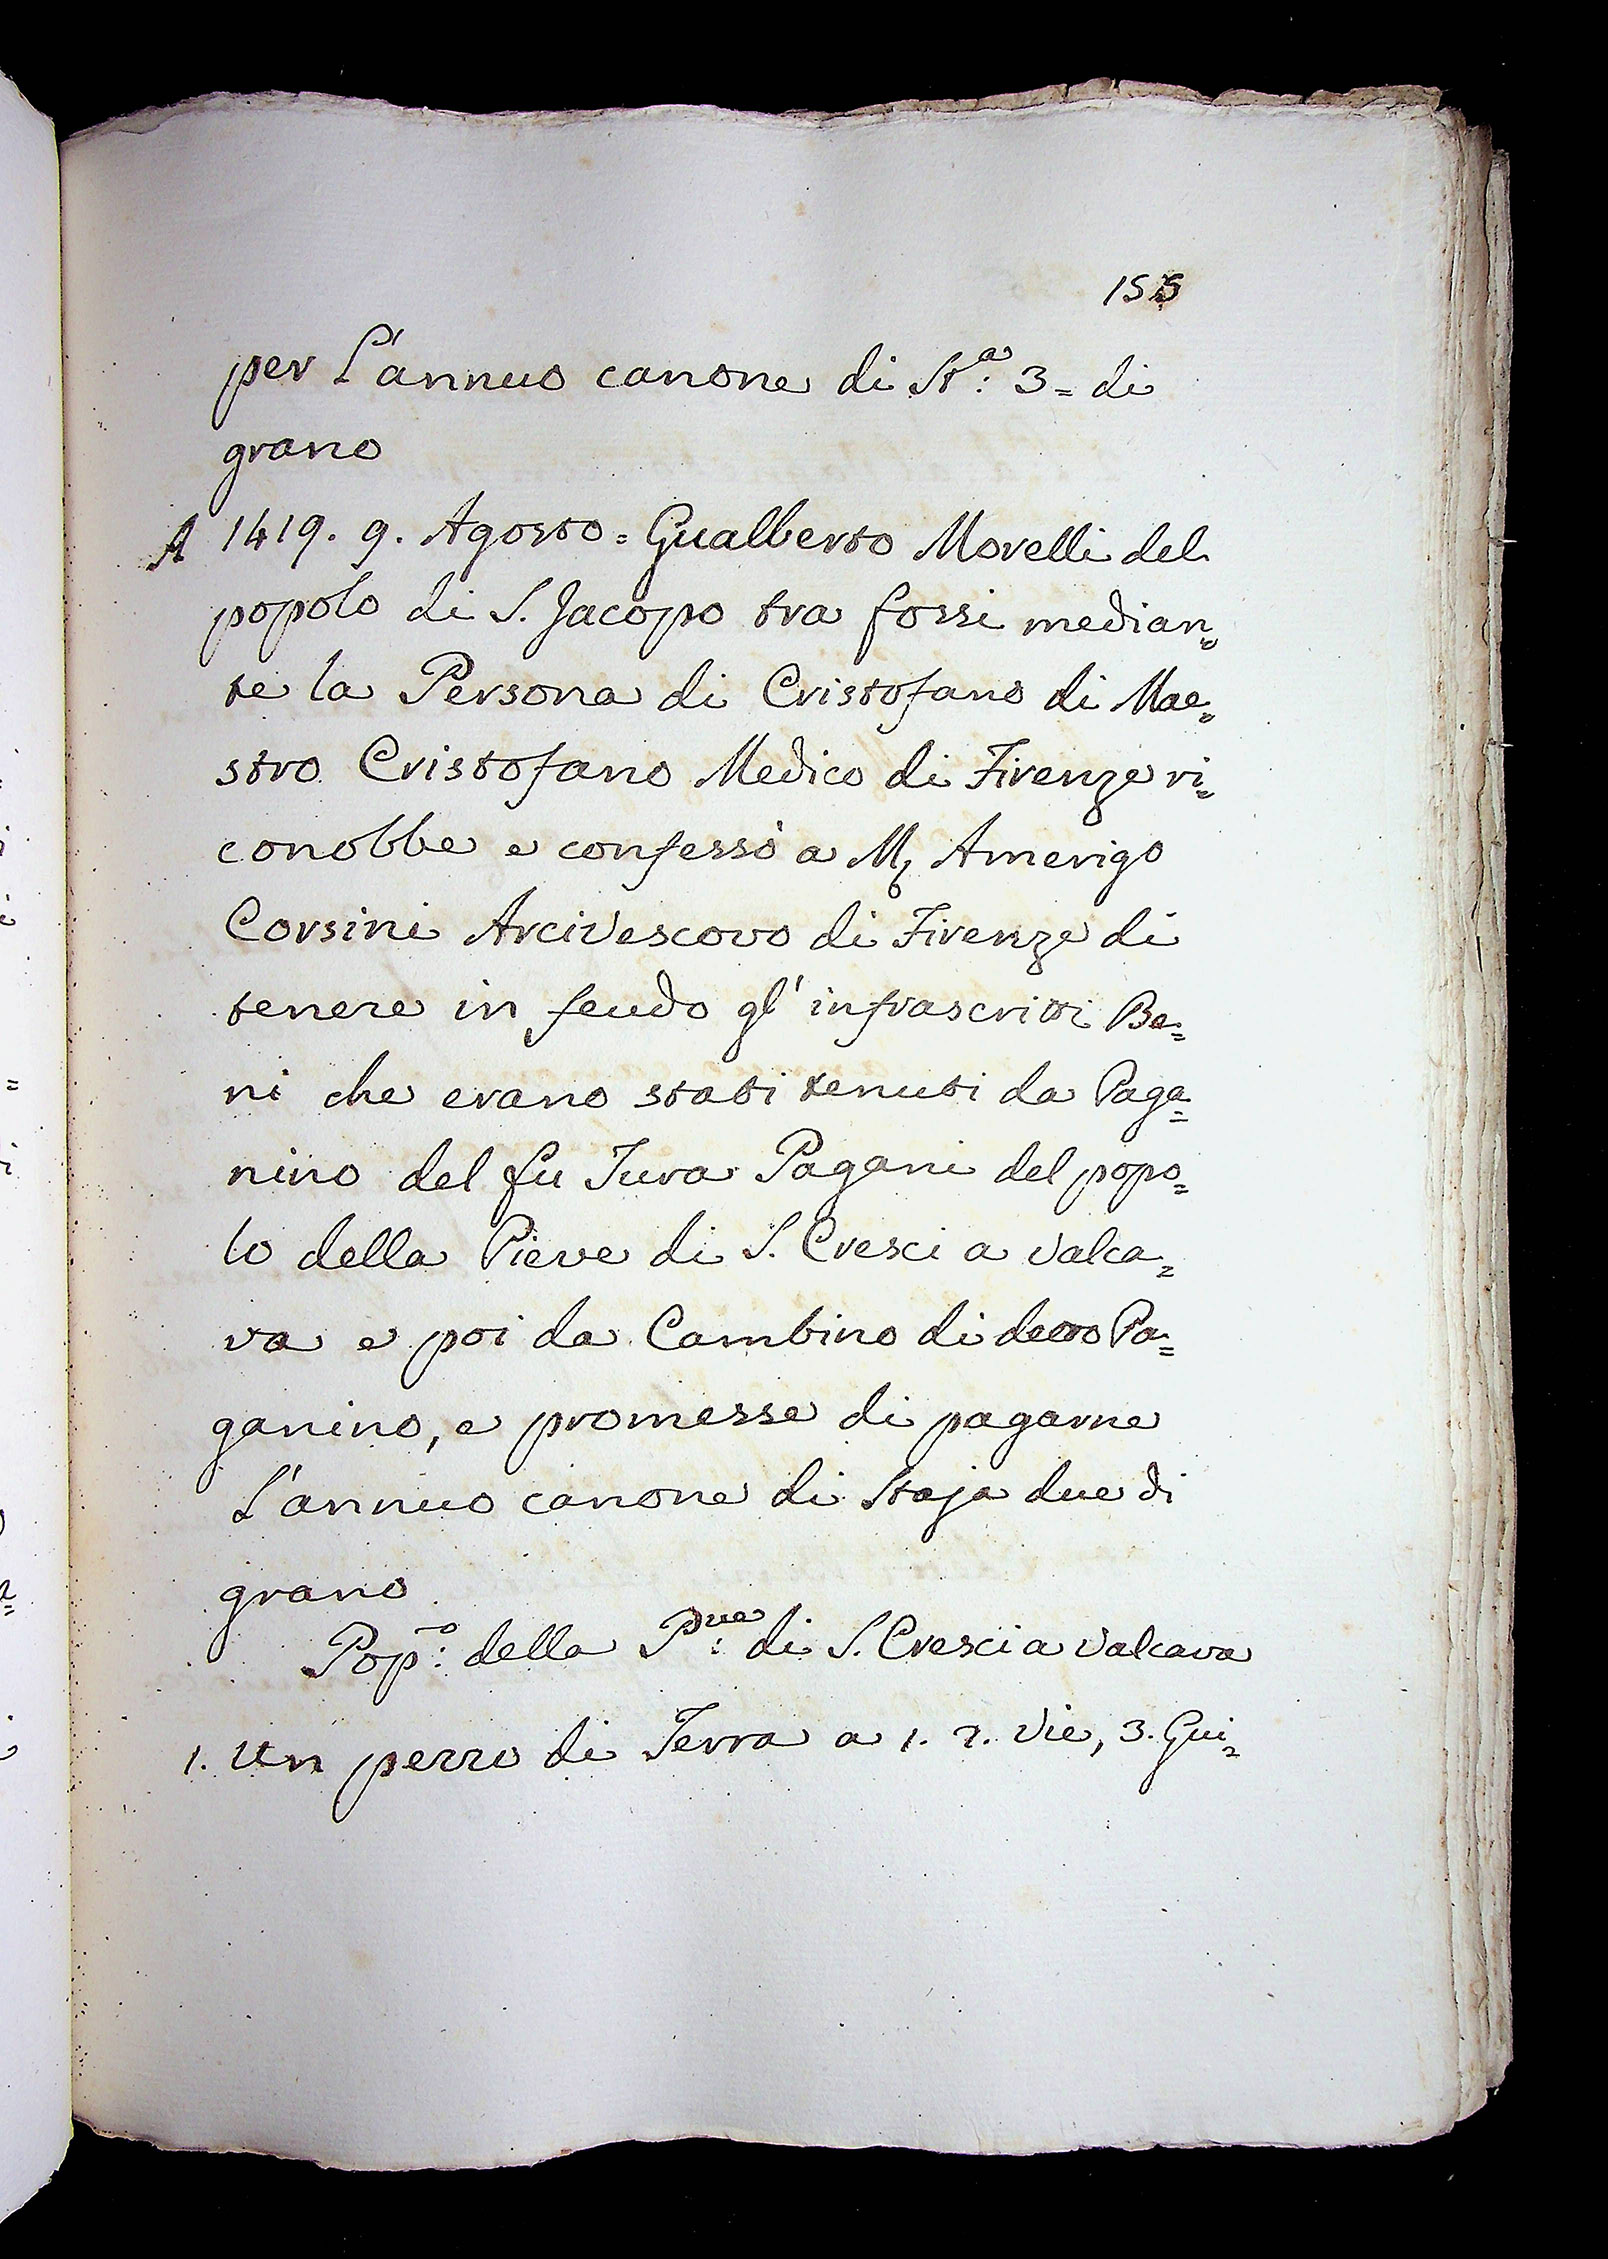 155
per L'annuo canone di St.ª 3= di
grano
A 1419. 9. Agosto = Gualberto Morelli del
popolo di S. Jacopo tra fossi median=
te la Persona di Cristofano di Mae=
stro Cristofano Medico di Firenze ri=
conobbe e confessò a M, Amerigo
Corsini Arcivescovo di Firenze di
tenere in feudo gl'infrascritti Be=
ni che erano stati tenuti da Paga=
nino del fu Tura Pagani del popo=
lo della Pieve di S. Cresci a Valca=
va e poi da Cambino di detto Pa=
ganino, e promesse di pagarne
L'annuo canone di Staja due di
grano
Pop:º della P:ve di S. Cresci a Valcava
1. Un pezzo di Terra a 1. 2. Vie, 3. Gui=